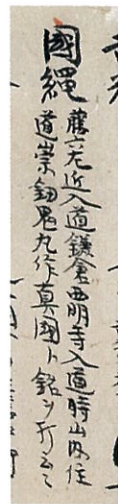 國縄
藤六左近入道鎌倉西明寺入道時山内住
道崇釼鬼丸作真國ト銘ヲ打云々